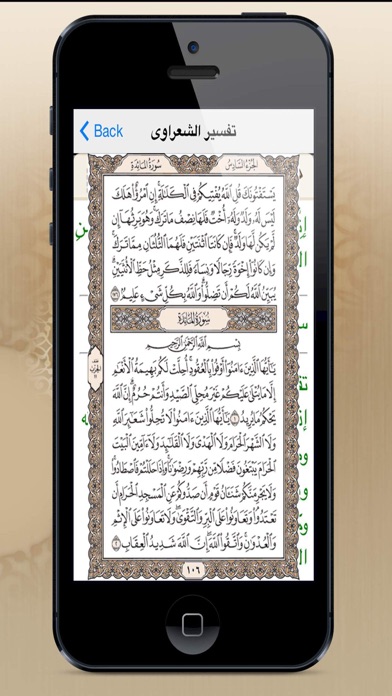 Back
تفسير الشعراوى
الجُزْءُ السَّادِسُ سُورَةُ المَائِدَةِ
يَسْتَفْتُونَكَ قُلِ ٱللَّهُ يُفْتِيكُمْ فِي ٱلْكَلَٰلَةِ إِنِ ٱمْرُؤٌا۟ هَلَكَ
لَيْسَ لَهُۥ وَلَدٌ وَلَهُۥٓ أُخْتٌ فَلَهَا نِصْفُ مَا تَرَكَ وَهُوَ يَرِثُهَآ إِن
لَّمْ يَكُن لَّهَا وَلَدٌ فَإِن كَانَتَا ٱثْنَتَيْنِ فَلَهُمَا ٱلثُّلُثَانِ مِمَّا تَرَكَ
وَإِن كَانُوٓا۟ إِخْوَةً رِّجَالًا وَنِسَآءً فَلِلذَّكَرِ مِثْلُ حَظِّ ٱلْأُنثَيَيْنِ
يُبَيِّنُ ٱللَّهُ لَكُمْ أَن تَضِلُّوا۟ وَٱللَّهُ بِكُلِّ شَىْءٍ عَلِيمٌۢ ١٧٦
سُورَةُ المَائِدَةِ
بِسْمِ ٱللَّهِ ٱلرَّحْمَٰنِ ٱلرَّحِيمِ
يَٰٓأَيُّهَا ٱلَّذِينَ ءَامَنُوٓا۟ أَوْفُوا۟ بِٱلْعُقُودِ أُحِلَّتْ لَكُم بَهِيمَةُ ٱلْأَنْعَٰمِ
إِلَّا مَا يُتْلَىٰ عَلَيْكُمْ غَيْرَ مُحِلِّى ٱلصَّيْدِ وَأَنتُمْ حُرُمٌ إِنَّ ٱللَّهَ
يَحْكُمُ مَا يُرِيدُ ١ يَٰٓأَيُّهَا ٱلَّذِينَ ءَامَنُوا۟ لَا تُحِلُّوا۟ شَعَٰٓئِرَ ٱللَّهِ
وَلَا ٱلشَّهْرَ ٱلْحَرَامَ وَلَا ٱلْهَدْىَ وَلَا ٱلْقَلَٰٓئِدَ وَلَآ ءَآمِّينَ ٱلْبَيْتَ
ٱلْحَرَامَ يَبْتَغُونَ فَضْلًا مِّن رَّبِّهِمْ وَرِضْوَٰنًا وَإِذَا حَلَلْتُمْ فَٱصْطَادُوا۟
وَلَا يَجْرِمَنَّكُمْ شَنَـَٔانُ قَوْمٍ أَن صَدُّوكُمْ عَنِ ٱلْمَسْجِدِ ٱلْحَرَامِ أَن
تَعْتَدُوا۟ وَتَعَاوَنُوا۟ عَلَى ٱلْبِرِّ وَٱلتَّقْوَىٰ وَلَا تَعَاوَنُوا۟ عَلَى ٱلْإِثْمِ
وَٱلْعُدْوَٰنِ وَٱتَّقُوا۟ ٱللَّهَ إِنَّ ٱللَّهَ شَدِيدُ ٱلْعِقَابِ ٢
١٠٦